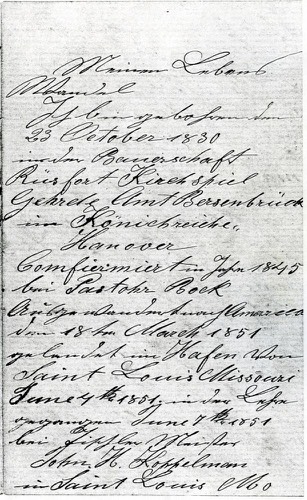 Meinen Lebens
Wandel
Ich bin gebohren den
23 October 1830
in der Bauerschaft
Rüsfort Kirchspiel
Gehrde Amt Bersenbrück
im Könichreiche
Hanover
Comfiermiert im Jahr 1845
bei Pastohr Bock
Ausgewandert nach America
den 18te March 1851
gelandet im Hafen von
Saint Louis Missouri
June 4th 1851 in der Lehre
gegangen June 7th 1851
bei Tischler Meister
John H. Koppelman
in Saint Louis Mo